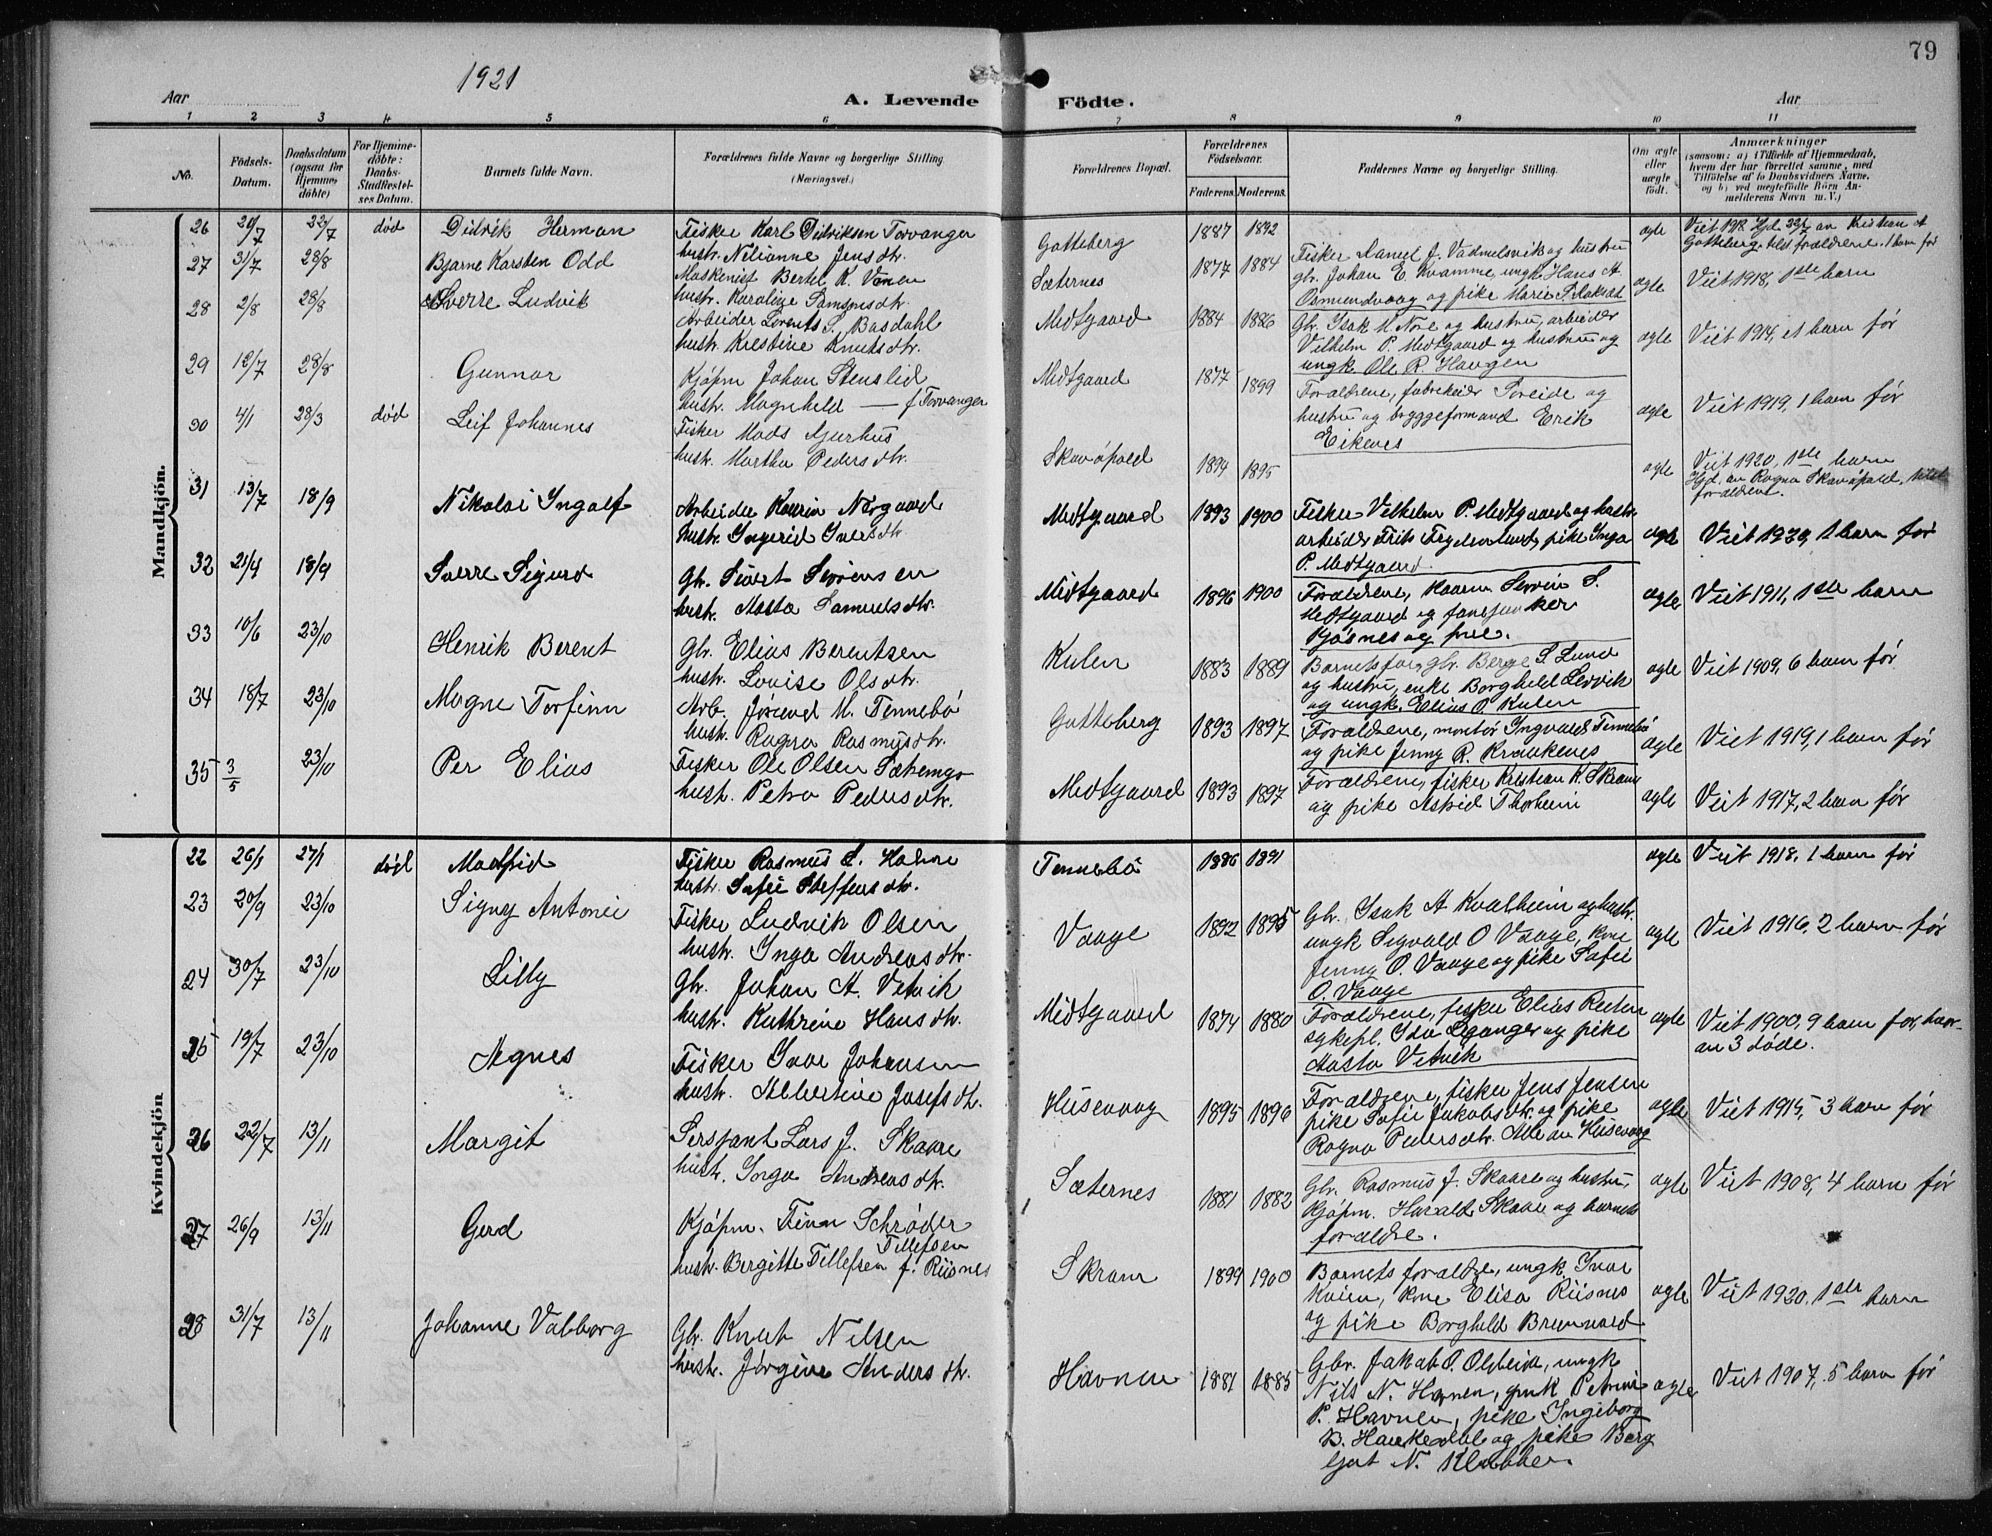 79
1921
Aar
A. Levende
Födte.
Aar
1 2 3 4 5 6 7 8 9 10 11
No.
Födsels-
Datum.
Daabsdatum
(ogsaa for
Hjemme-
döbte)
For Hjemme-
döbte:
Daabs-
Stadfæstel-
ses Datum.
Barnets fulde Navn.
Forældrenes fulde Navne og borgerlige Stilling.
(Næringsvei.)
Forældrenes Bopæl.
Forældrenes
Födselsaar.
Faderens. Moderens.
Faddernes Navne og borgerlige Stilling.
Om ægte
eller
uægte
födt.
Anmærkninger
(saasom: a) i Tilfælde af Hjemmedaab,
hvem der har forrettet samme, med
Tilföielse af to Daabsvidners Navne,
og b) ved uægtefödte Börn An-
melderens Navn m. V.)
Mandkjön.
26 20/7 22/7 død Didrik Herman
Fisker Karl Didriksen Torvanger
hustr. Nilianne Jensdtr.
Gotteberg 1887 1892
ægte
Viet 1912. Hjd. 22/7 av Kristian
Gotteberg, tilst. forældrene. 1 barn før
27 31/7 28/8 Bjarne Karsten Odd
Maskenist Bertel K.
hustr. Karoline Samsonsdtr.
Sæternes 1877 1884
Fisker J. Vadmelsvik og hustru
gbr. Johan E. Kvamme, ungk. Hans A.
Osmundvaag og pike Marie
ægte Viet 1918, 1ste barn
28 2/8 28/8 Sverre Ludvik
Arbeider Lorents S. Basdahl
hustr. Kristine Knutsdtr.
Midtgaard 1884 1886
Gbr. Isak M. Nore og hustru, arbeider
Vilhelm P. Midtgaard og hustru og
ungk. Ole R. Haugen
ægte Viet 1914, et barn før
29 12/7 28/8 Gunnar
Kjøpm. Johan Stenslid
hustr. Magnhild — f. Torvanger
Midtgaard 1877 1899
Forældrene, fabrikeier Soreide og
hustru og bryggeformand Erik
Eikenes
ægte Viet 1919, 1 barn før
30 4/1 28/3 død Leif Johannes
Fisker Mads Gjerhus
hustr. Martha Pedersdtr.
Skavøpold 1894 1895
ægte Viet 1920, 1ste barn
Hjd. av Ragna Skavøpold, tilst.
forældrene.
31 13/7 18/9 Nikolai Ingolf
Arbeider Kaurin Norgaard
hustr. Ingerid Iversdtr.
Midtgaard 1893 1900
Fisker Vilhelm P. Midtgaard og hustr.
arbeider Frits Frydenlund, pike Inga
P. Midtgaard
ægte Viet 1920, 1 barn før
32 21/4 18/9 Sverre Sigurd
Gbr. Sivert Sørensen
hustr. Aasta Samuelsdtr.
Midtgaard 1896 1900
Forældrene, Kaarin Servin S.
Midtgaard og fanejunker
Kjøsnes og frue.
ægte Viet 1911, 1ste barn
33 10/6 23/10 Henrik Berent
Gbr. Elias Berentsen
hustr. Lovise Olsdtr.
Kulen 1883 1889
Barnets far, gbr. Berge S. Lund
og hustru, enke Borghild Lervik
og ungk. Elias O. Kulen
ægte Viet 1909, 6 barn før
34 18/7 23/10 Magne Torfinn
Arb. Jørund M. Tennebø
hustr. Ragna Rasmusdtr.
Gotteberg 1893 1897
Forældrene, montør Ingvald Tennebø
og pike Jenny R. Kraakenes
ægte Viet 1919, 1 barn før
35 3/5 23/10 Per Elias
Fisker Ole Olsen
hust. Petra Pedersdtr.
Midtgaard 1893 1897
Forældrene, fisker Kristian K. Skram
og pike Astrid Thorheim
ægte Viet 1917, 2 barn før
Kvindekjön
22 26/1 27/1 død Madfrid
Fisker Rasmus
hustr. Sofie Steffensdtr.
Tennebø 1886 1891
ægte Viet 1918, 1 barn før
23 20/9 23/10 Signy Antonie
Fisker Ludvik Olsen
hustr. Inga Andreasdtr.
Vaage 1892 1895
Gbr. Isak A. Kvalheim og hustr.
ungk. Sigvald O. Vaage, kone
Jenny O. Vaage og pike Sofie
O. Vaage
ægte Viet 1916, 2 barn før
24 30/7 23/10 Lilly
Gbr. Johan A. Vetvik
hustr. Kathrine Hansdtr.
Midtgaard 1874 1880
Forældrene, fisker Elias
sykepl. Ida Leganger og pike
Aasta Vetvik
ægte Viet 1900, 9 barn før, hvor-
av 3 døde.
25 19/7 23/10 Agnes
Fisker Ivar Johansen
hustr. Albertine Josefsdtr.
Husevaag 1895 1896
Forældrene, fisker Jens Jensen
pike Sofie Jakobsdtr. og pike
Ragna Pedersdtr. Alle av Husevaag
ægte Viet 1915, 3 barn før
26 22/7 13/11 Margit
Sersjant Lars J. Skaare
hustr. Inga Andreasdtr.
Sæternes 1881 1882
Gbr. Rasmus J. Skaare og hustru,
kjøpm. Harald Skaare og barnets
forældre.
ægte Viet 1908, 4 barn før
27 26/9 13/11 Gerd
Kjøpm. Finn Schrøder
Tillefsen
hustr. Bergitte Tillefsen f. Riisnes
Skram 1899 1900
Barnets forældre, ungk. Ivar
Kvien, kone Elisa Riisnes
og pike Borghild
ægte Viet 1920. 1ste barn
28 31/7 13/11 Johanne Valborg
Gbr. Knut Nilsen
hustr. Jørgine Andersdtr.
Havnen 1881 1885
Gbr. Jakob O. ungk.
Nils N. Havnen, Petrine
P. Havnen, pike Ingeborg
B. Haukedal og pike Berg
ljot N. Klubben.
ægte Viet 1907, 5 barn før